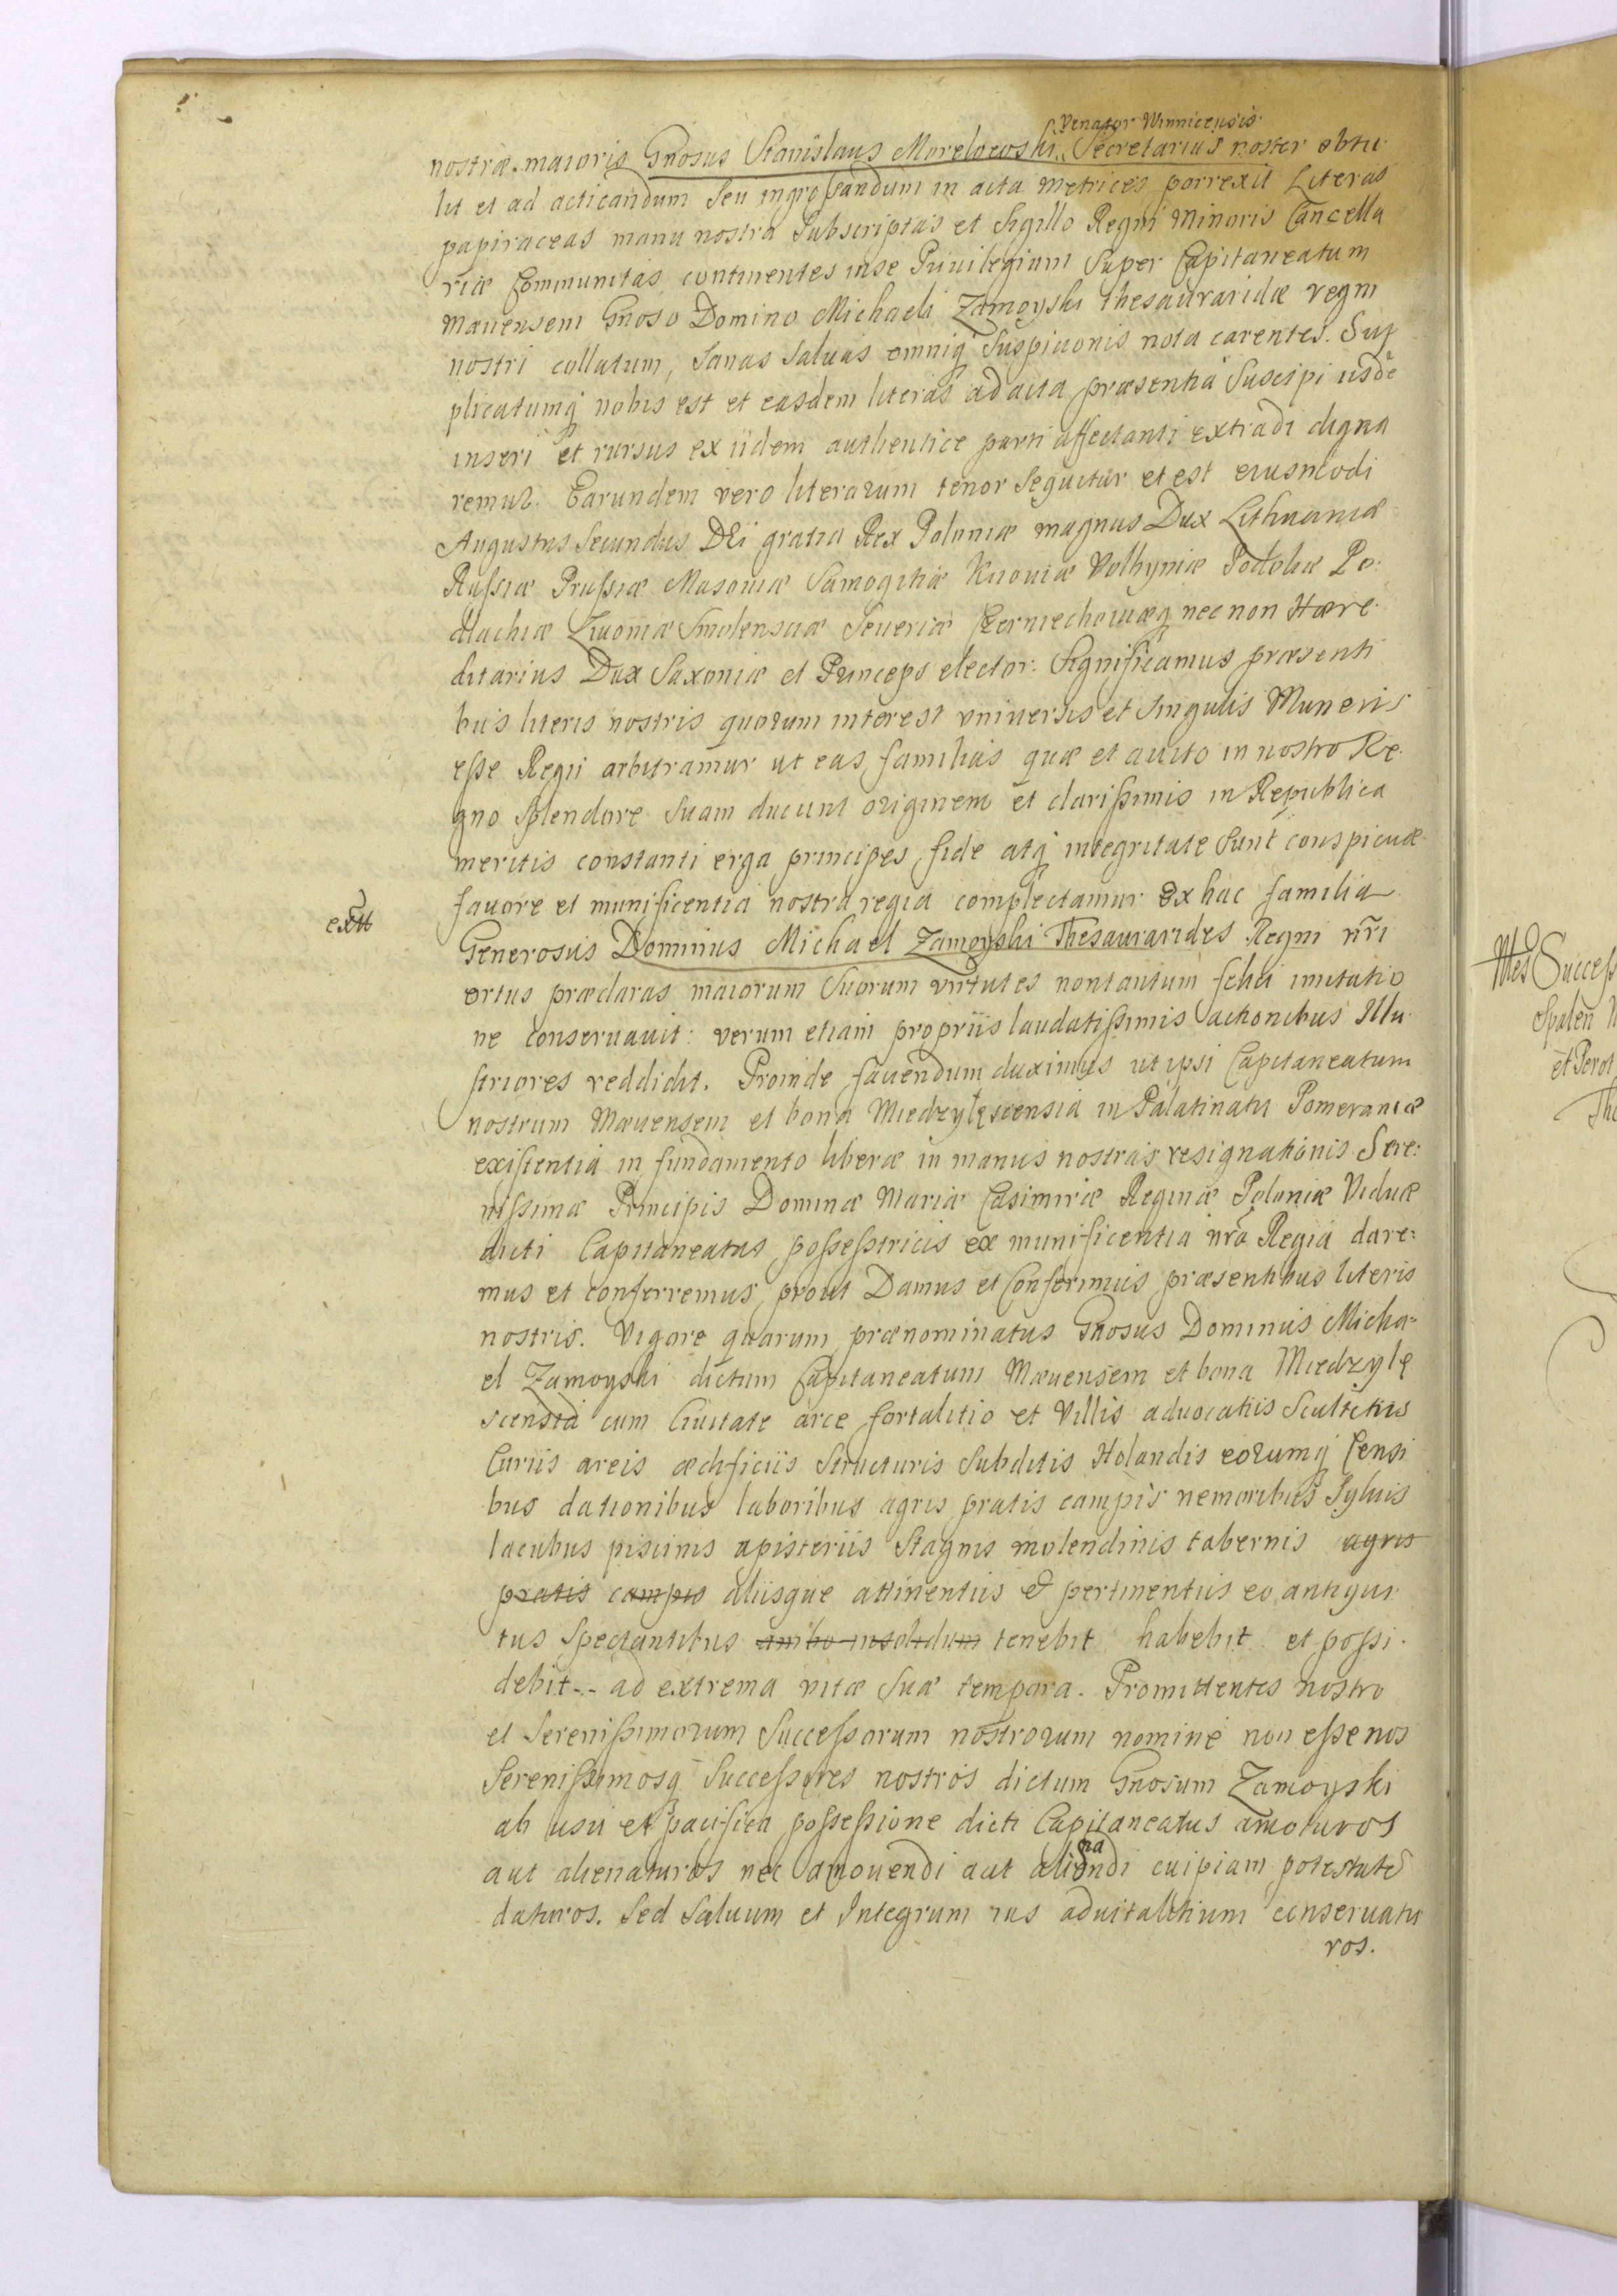 Venator Winnicensis
nostræ maioris Gnosus Stanislaus Morelowski Secretarius noster obtu
lit et ad acticandum seu ingrossandum in acta metrices porrexit Literas
papiraceas manu nostra subscriptas et sigillo Regni Minoris Cancella
riæ Communitas, continentes in se Priuilegium super Capitaneatum
Mæuensem Gnoso Domino Michaeli Zamoyski Thesauraridæ regni
nostri collatum, sanas saluas omniq suspicionis nota carentes. Sup
plicatumq nobis est et easdem literas ad acta præsentia suscipi iisdē
inseri et rursus ex iidem authentice parti affectanti extradi digna
remur. Earundem vero literarum tenor sequitur et est eiusmodi
Augustus Secundus DEi gratia Rex Poloniæ magnus Dux Lithuaniæ
Russiæ Prussiæ Masouiæ Samogitiæ Kiiouiæ Volhyniæ Podoliæ Po:
dlachiæ Liuoniæ Smolensciæ Seueriæ Czerniechouiæq nec non Hære
ditarius Dux Saxoniæ et Princeps elector. Significamus præsenti
bus literis nostris quorum interest vniuersis et singulis Muneris
esse Regii arbitramur ut eas familias quæ et auito in nostro Re
gno splendore suam ducunt originem et clarissimis in Republica
meritis constanti erga principes fide atq integritate sunt conspicuæ
fauore et munificentia nostra regia complectamur Ex hac familia
extt
Generosus Dominus Michael Zamoyski Thesaurarides Regni nr̄i
ortus præclaras maiorum suorum virtutes non tantum felici imitatio
ne conseruauit: verum etiam propriis laudatissimis actionibus Illu
striores reddidit. Proinde fauendum duximus ut ipsi Capitaneatum
nostrum Mæuensem et bona Miedzylęscensia in Palatinatu Pomeraniæ
existentia in fundamento liberæ in manus nostras resignationis Sere:
nissimæ Principis Dominæ Mariæ Casimiriæ Reginæ Poloniæ Viduæ
dicti Capitaneatus possestricis ex munificentia nr̄a Regia dare:
mus et conferremus, prout Damus et Conferimus præsentibus literis
nostris. Vigore quarum prænominatus Gnosus Dominus Micha-
el Zamoyski dictum Capitaneatum Mæuensem et bona Miedzylę
scensia cum Ciuitate arce fortalitio et Villis aduocatiis Scultetiis
Curiis areis ædificiis structuris subditis Holandis eorumq Censi
bus dationibus laboribus agris pratis campis nemoribus syluis
lacubus piscinis apisteriis stagnis molendinis tabernis agris
pratis campis aliisque attinentiis & pertinentiis eo antiqui
tus spectantibus ambo insolidum tenebit habebit et possi.
debit -- ad extrema vitæ suæ tempora. Promittentes nostro
et Serenissimorum Successorum nostrorum nomine non esse nos
Serenissimosq Successores nostros dictum Gnosum Zamoyski
ab usu et pacifica possessione dicti Capitaneatus amoturos
na
aut alienaturos nec amouendi aut aliendi cuipiam potestatē
daturos. Sed saluum et Integrum ius aduitalitium conseruatu
ros.
Successo
et Perot